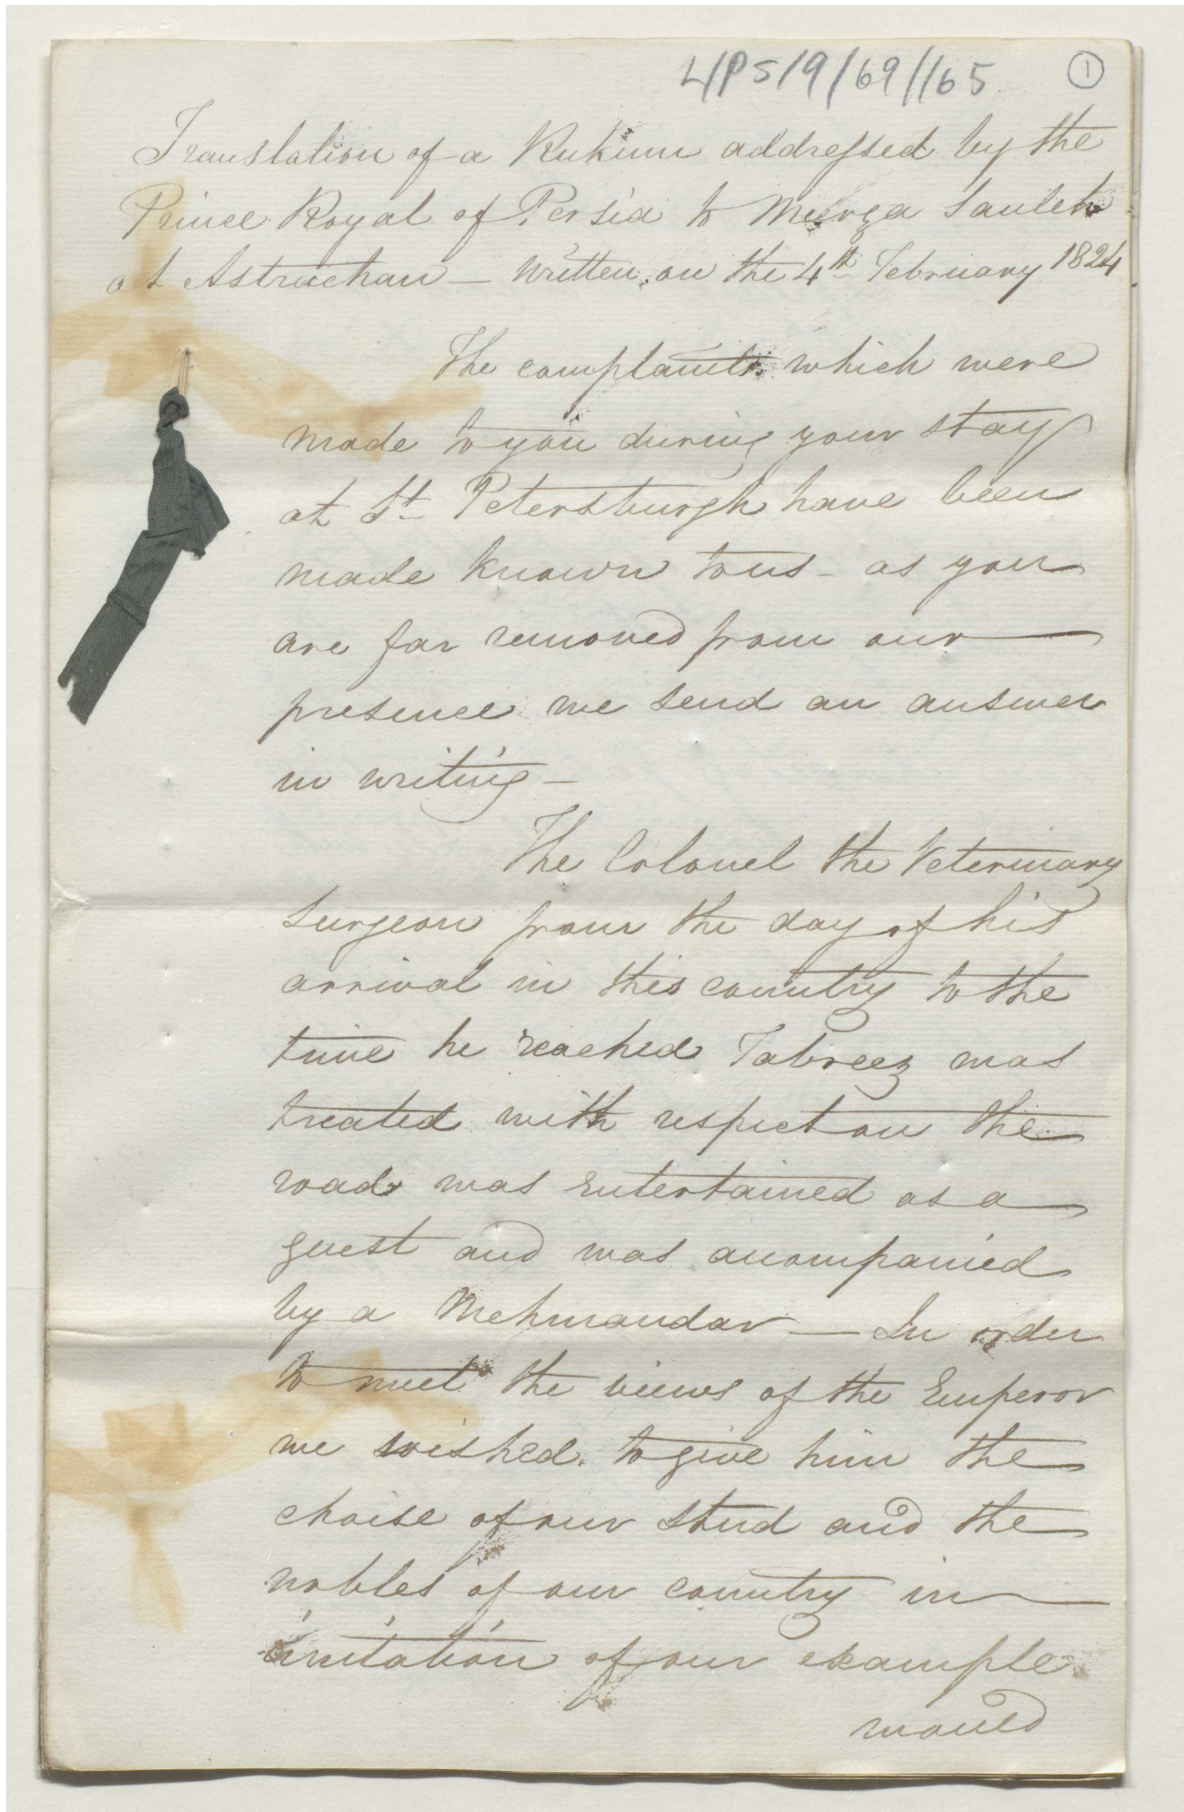 L/PS/9/69/165 1
Translation of a Rukum addressed by the
Prince Royal of Persia to Meerza Sauleh
at Astrachan — written on the 4th February 1824
The complaints which were
made to you during your stay
at St. Petersburgh have been
made known to us - as you
are far removed from our
presence we send an answer
in writing —
The Colonel the Veterinary
Surgeon from the day of his
arrival in this country to the
time he reached Tabreez was
treated with respect on the
road was entertained as a
guest and was acompanied
by a Mehmandar — In order
to meet the views of the Emperor
we wished to give him the
choise of our Stud and the
nobles of our country in
imitation of our example
would